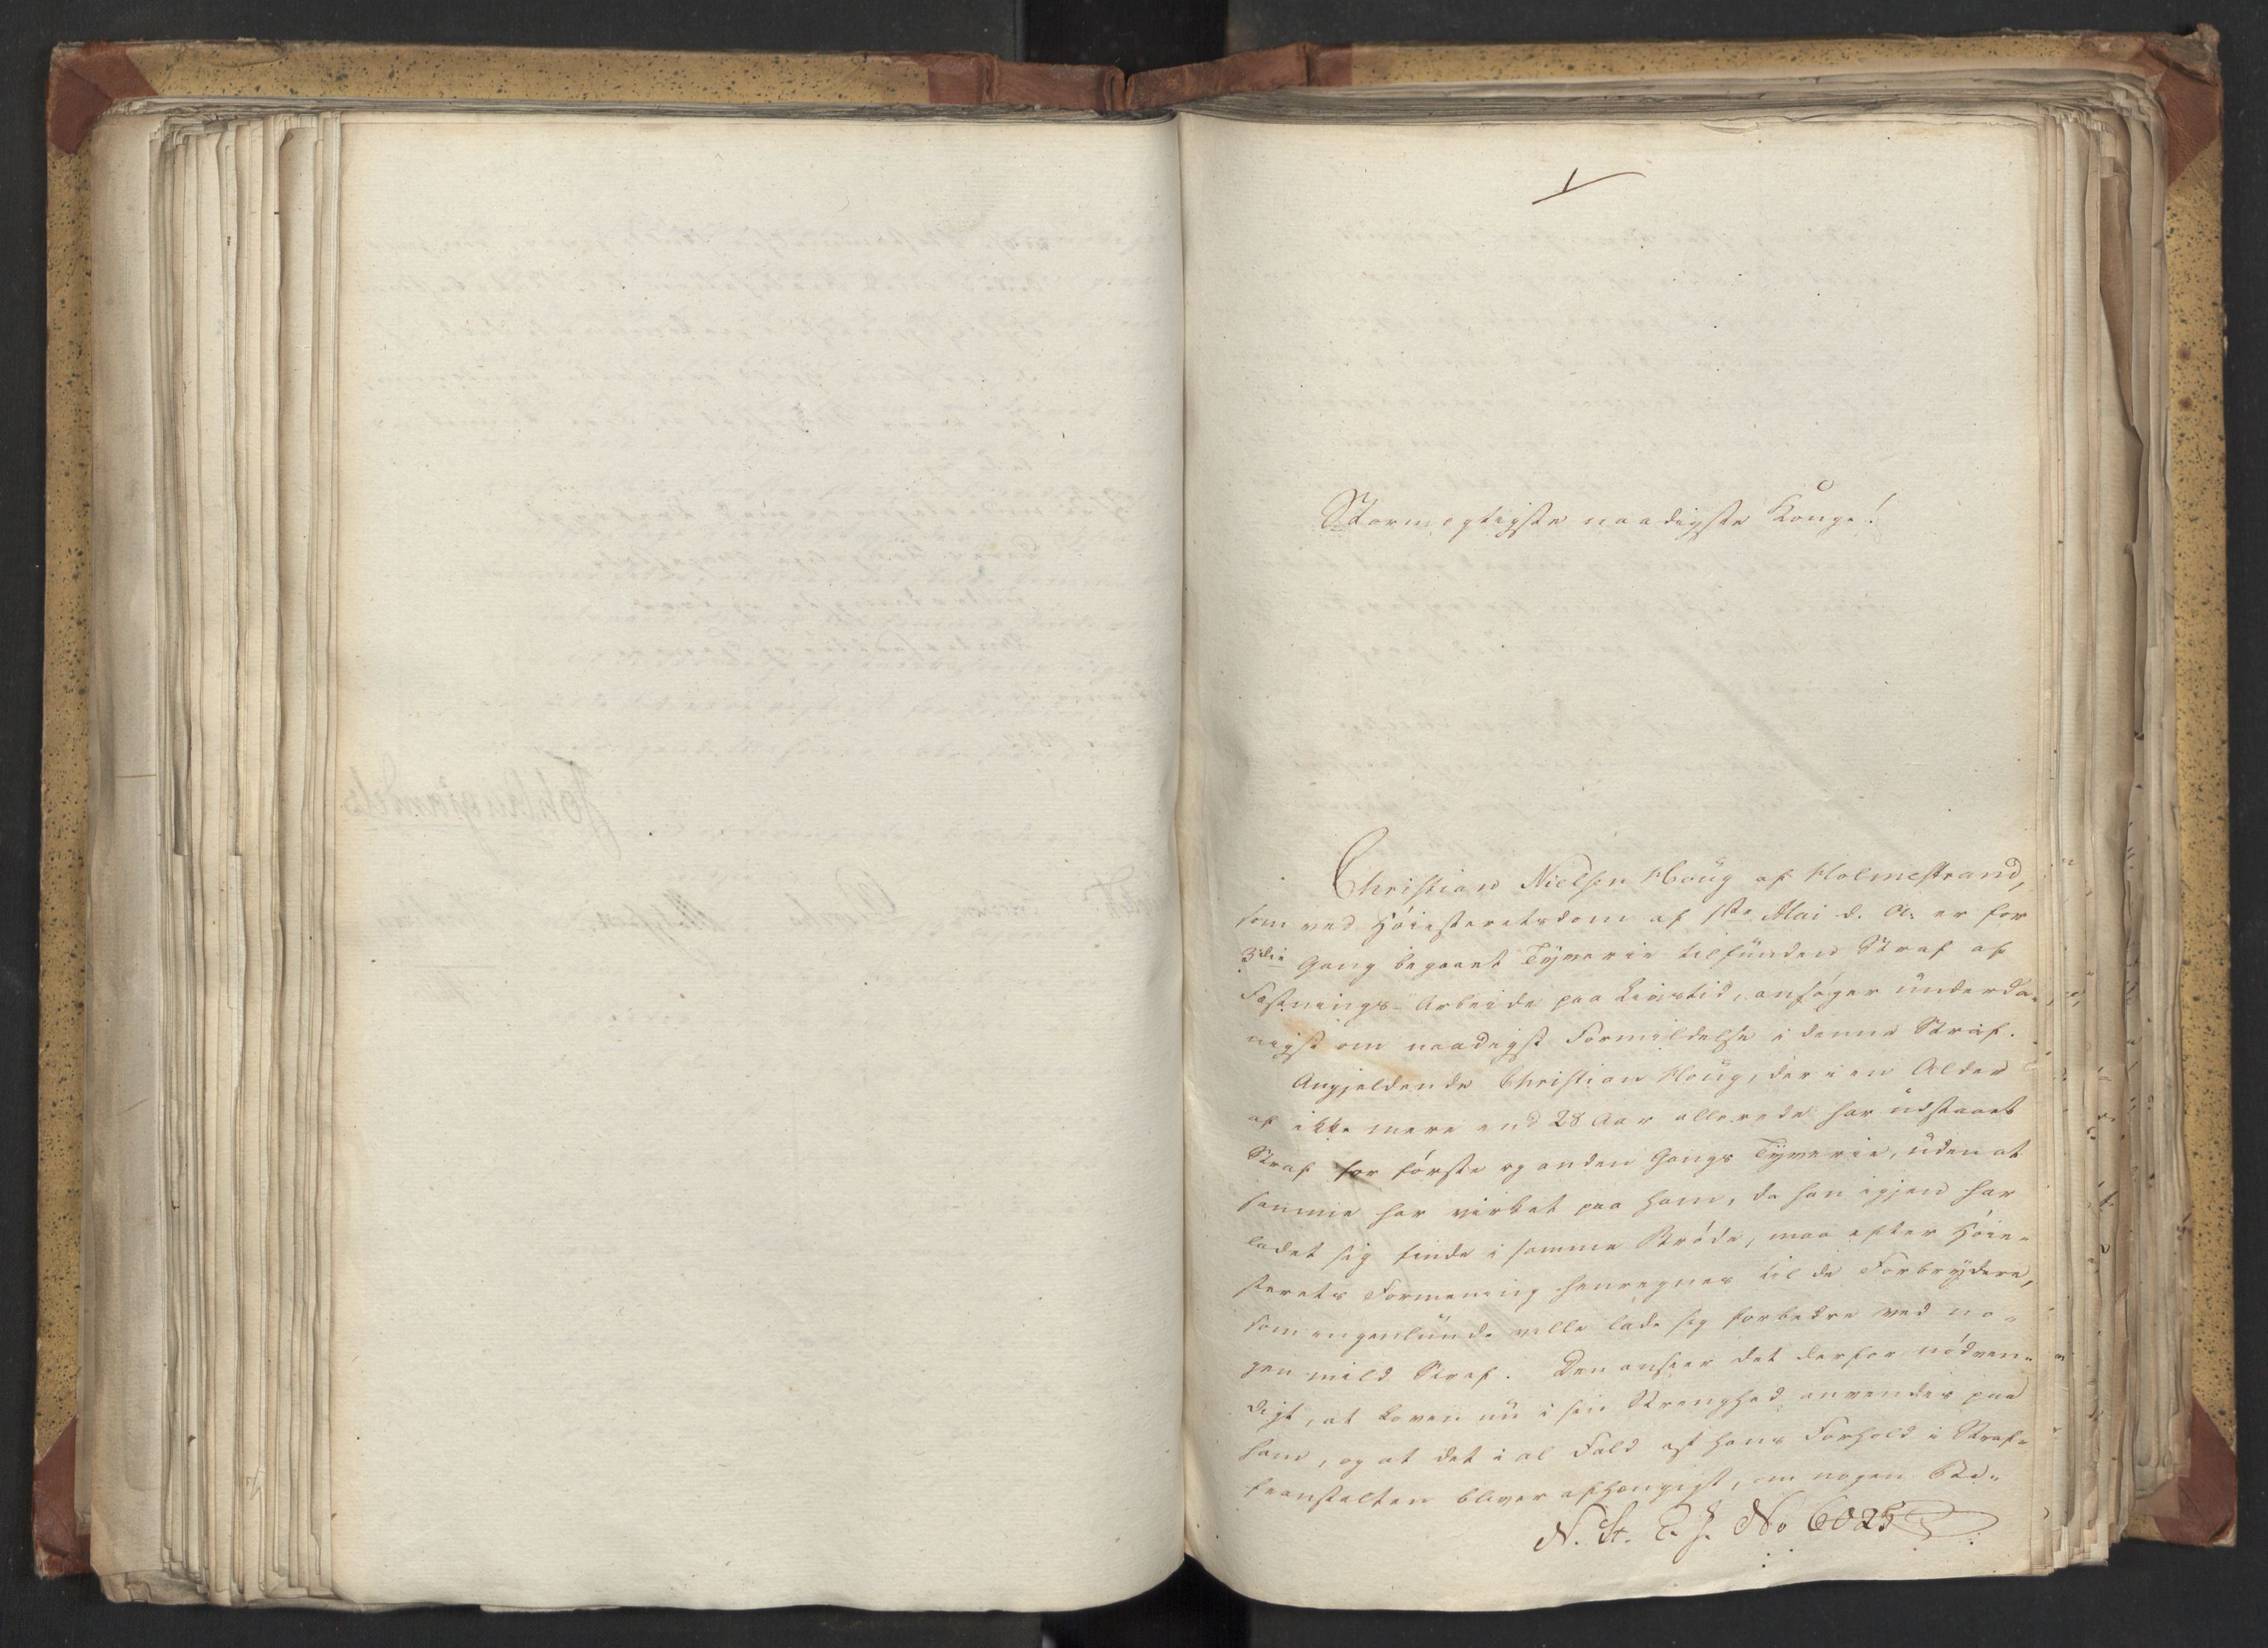 Stormægtigste naadigste Konge!
Christian Nielsen Houg af Holmestrand,
som ved Høiesteretsdom af 1ste Mai d. A. er for
3die Gang begaaet Tyverie tilfunden Straf af
Fæstnings-Arbeide paa Livstid, ansøger underda-
nigst om naadigst Formildelse i denne Straf.
Angjeldende Christian Houg, der i en Alder
af ikke mere end 28 Aar allerede har udstaaet
Straf for første og anden Gangs Tyverie, uden at
samme har virket paa ham, da han igjen har
ladet sig finde i samme Brøde, maa efter Høie-
sterets Formening henregnes til de Forbrydere,
som ingenlunde ville lade sig forbedre ved no-
gen mild Straf. Den anseer det derfor nødven-
digt, at Loven nu i sin Strenghed anvendes paa
ham, og at det i al Fald af hans Forhold i Straf-
feanstalten bliver afhængigt, om nogen
N. St. E. J. No 6025